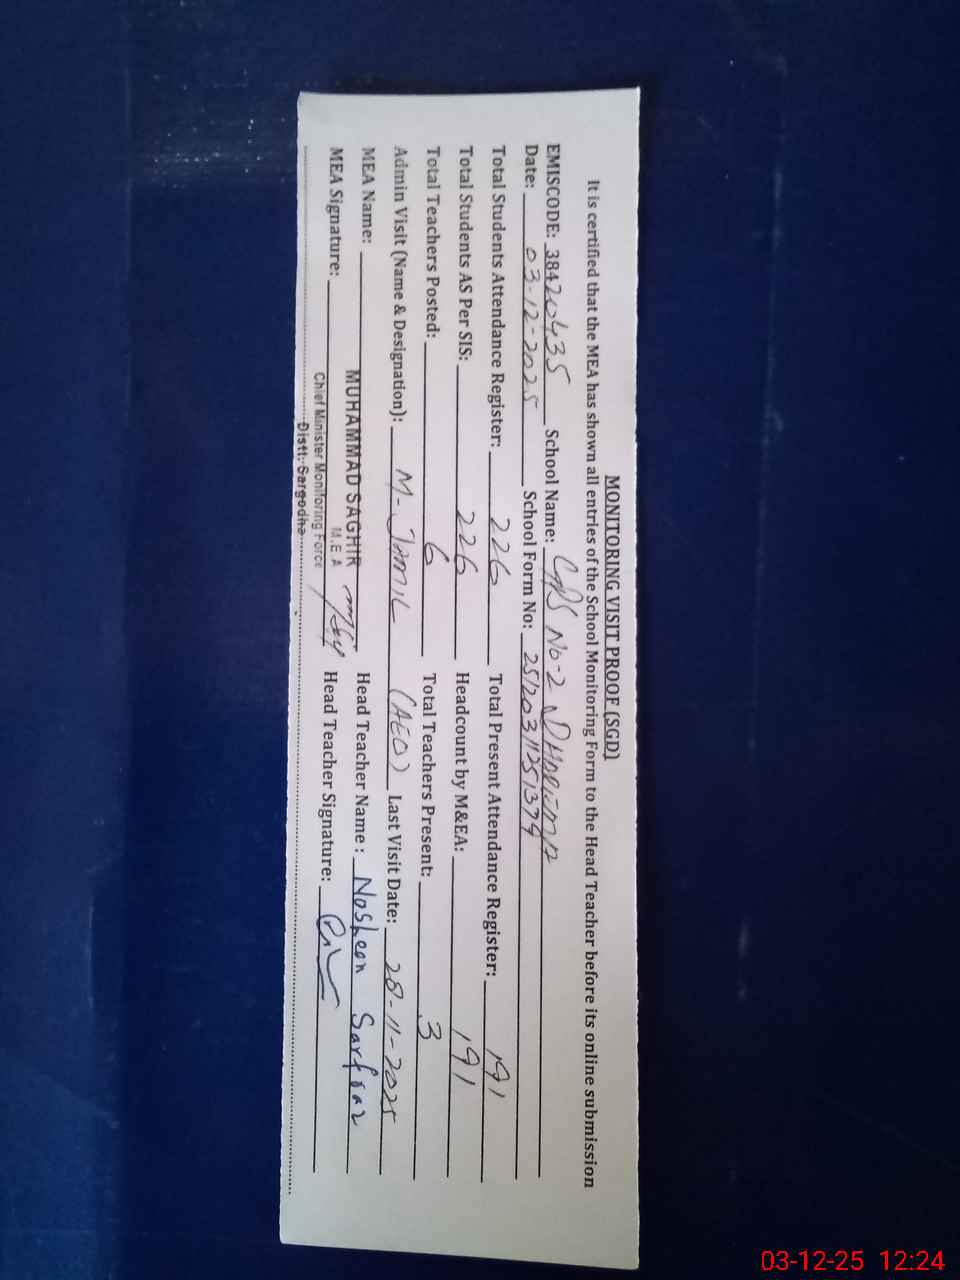 MONITORING VISIT PROOF (SGD)
It is certified that the MEA has shown all entries of the School Monitoring Form to the Head Teacher before its online submission
EMISCODE: 38420435 School Name: GPS No-2
Date: 03-12-2025 School Form No: 
Total Students Attendance Register: 226 Total Present Attendance Register: 191
Total Students AS Per SIS: 226 Headcount by M&EA: 191
Total Teachers Posted: 6 Total Teachers Present: 3
Admin Visit (Name & Designation): M- Jamil (AEO) Last Visit Date: 28-11-2025
MEA Name: MUHAMMAD SAGHIR Head Teacher Name : Nosheen Sarfraz
M.E.A
MEA Signature: Head Teacher Signature:
Chief Minister Monitoring Force
Distt: Sargodha
03-12-25 12:24